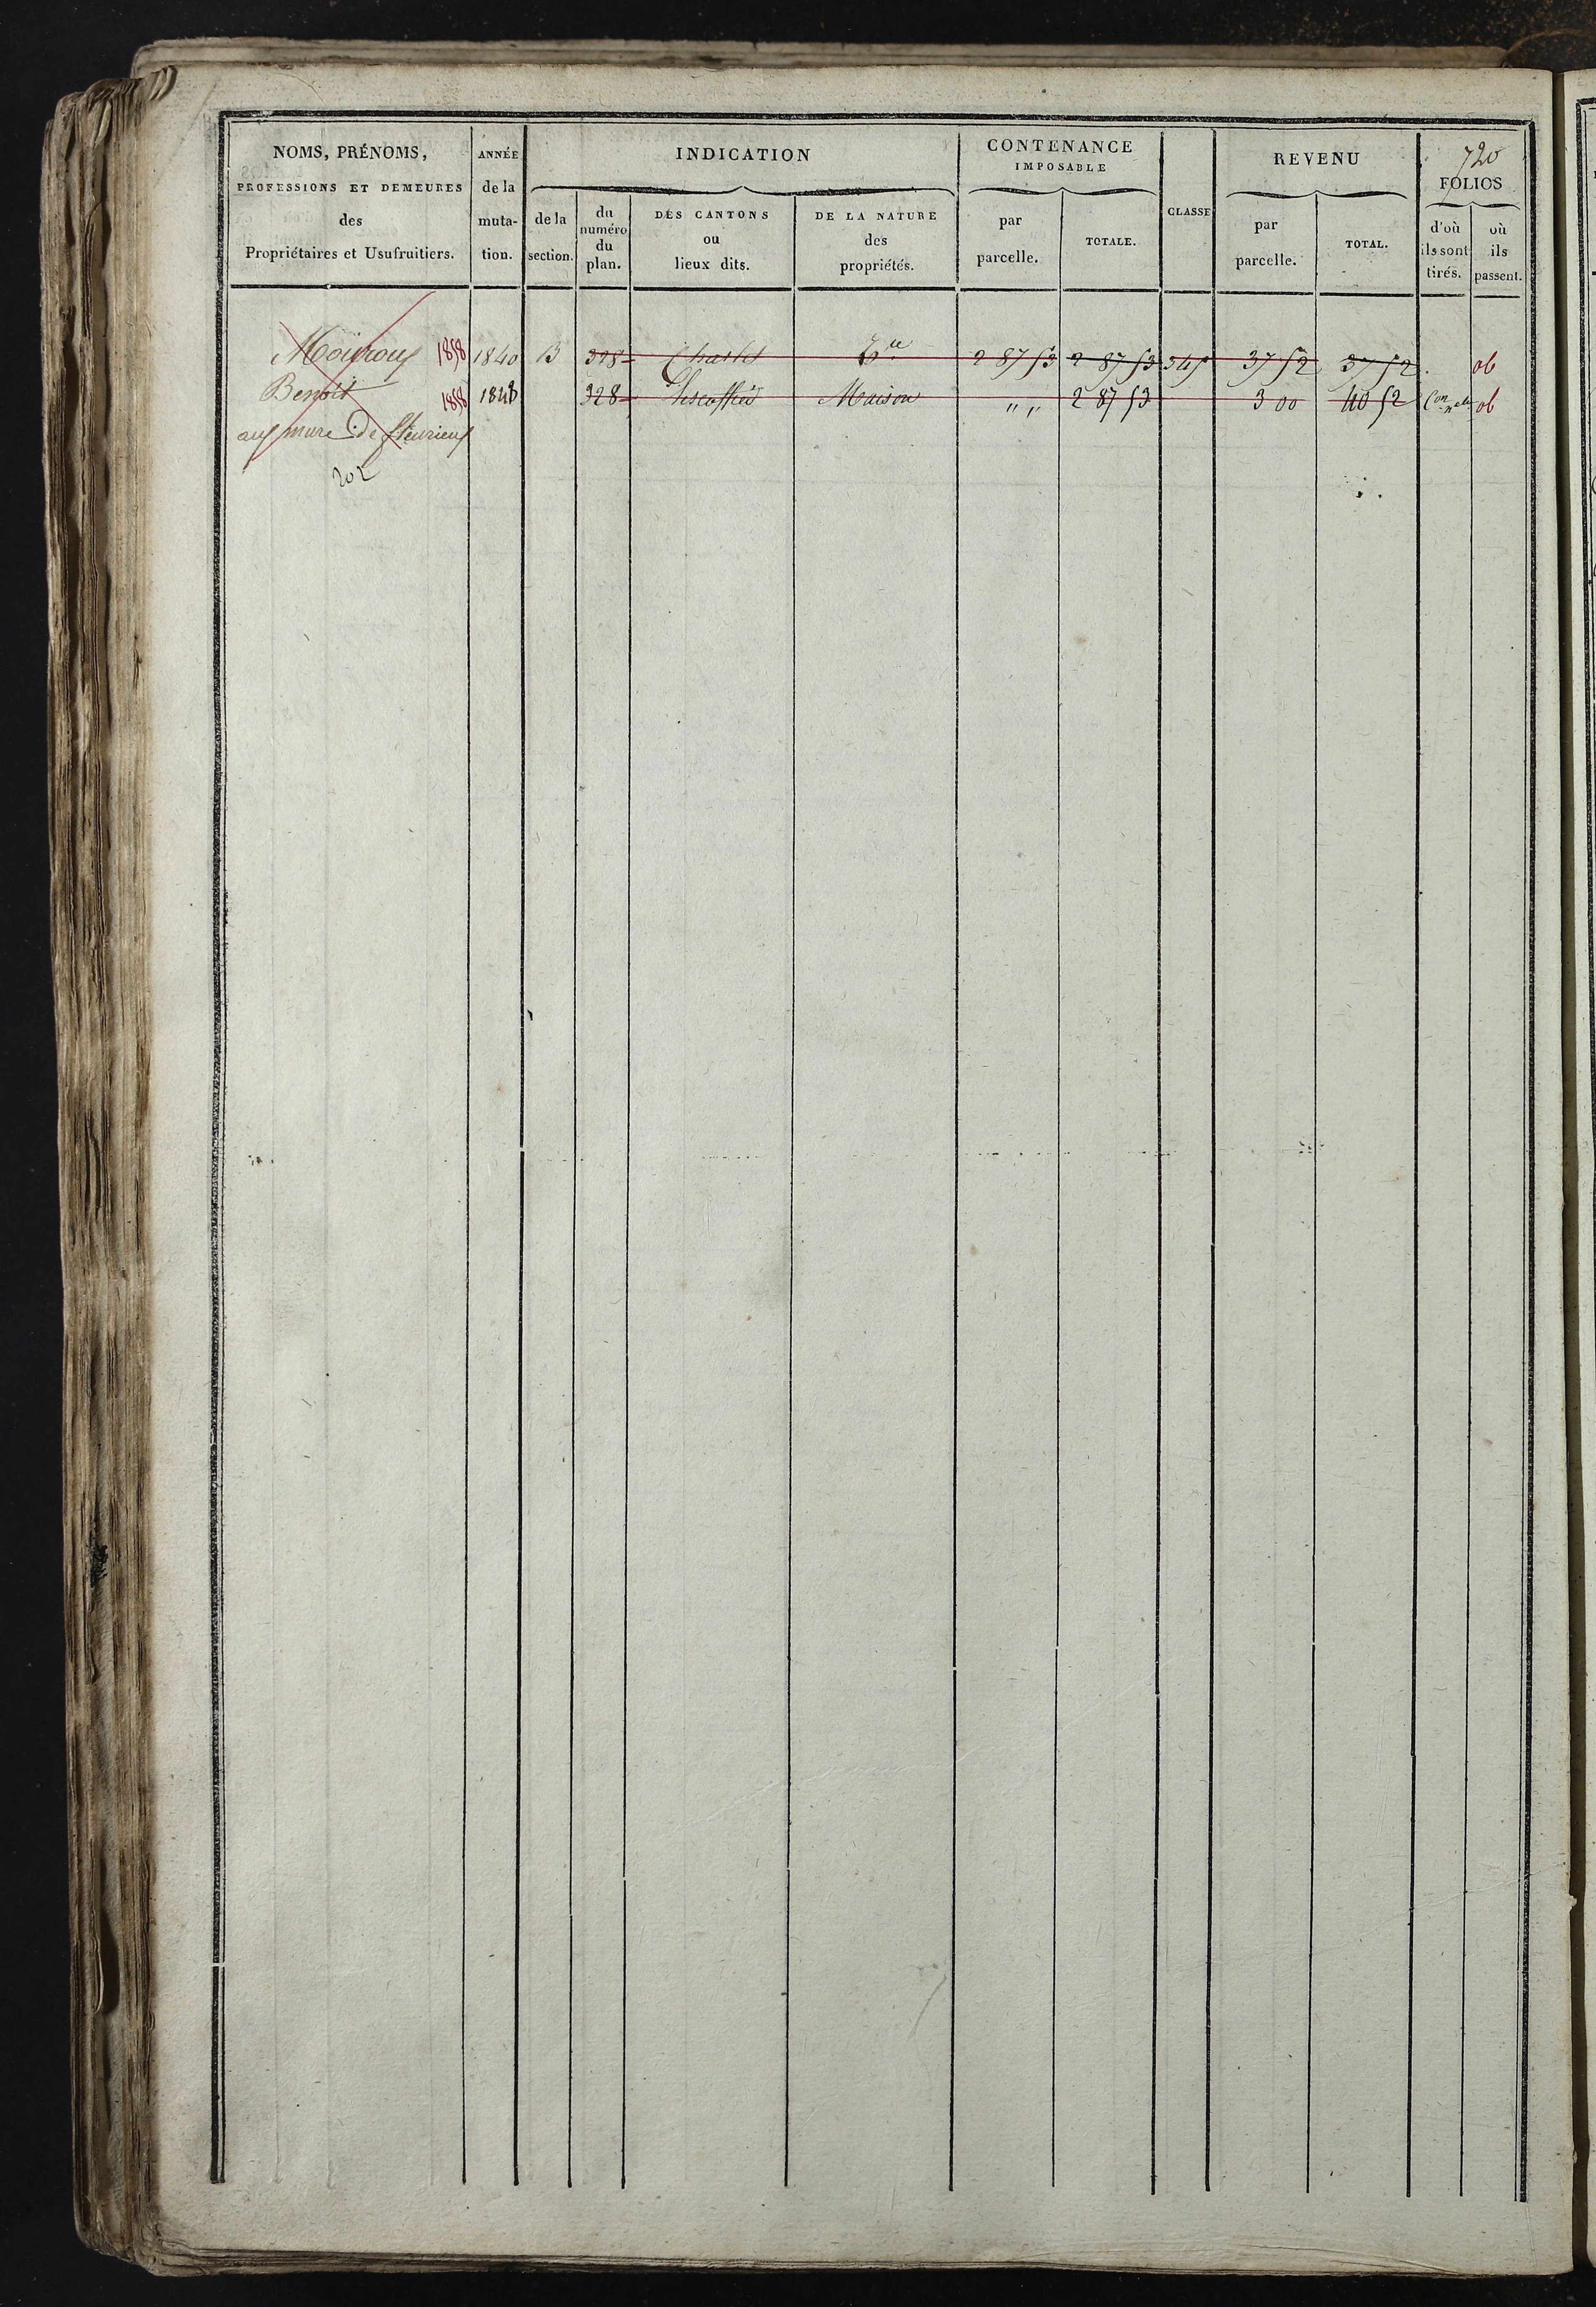 NOMS, PRÉNOMS,
PROFESSIONS ET DEMEURES
des
Propriétaires et Usufruitiers.
ANNÉE
de la
muta-
tion.
INDICATION
de la
section.
du
numéro
du
plan.
DES CANTONS
ou
lieux dits.
DE LA NATURE
des
propriétés.
CONTENANCE
IMPOSABLE
par
parcelle.
TOTALE.
CLASSE
REVENU
par
parcelle.
TOTAL.
720
FOLIOS
d'où
ils sont
tirés.
où
ils
passent.
1858 1840 B 2 87 53 2 87 53 345 37 52 37 52
Benoit 1858 1848 328 Maison " " 2 87 53 3 00 40 52
aux mure de fleurieux
202